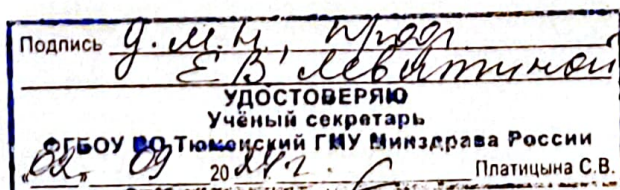 Подпись д.м.н., проф
Е.В. Левитиной
УДОСТОВЕРЯЮ
Учёный секретарь
ФГБОУ ВО Тюменский ГМУ Минздрава России
„02„ 09 2024г. Платицына С.В.